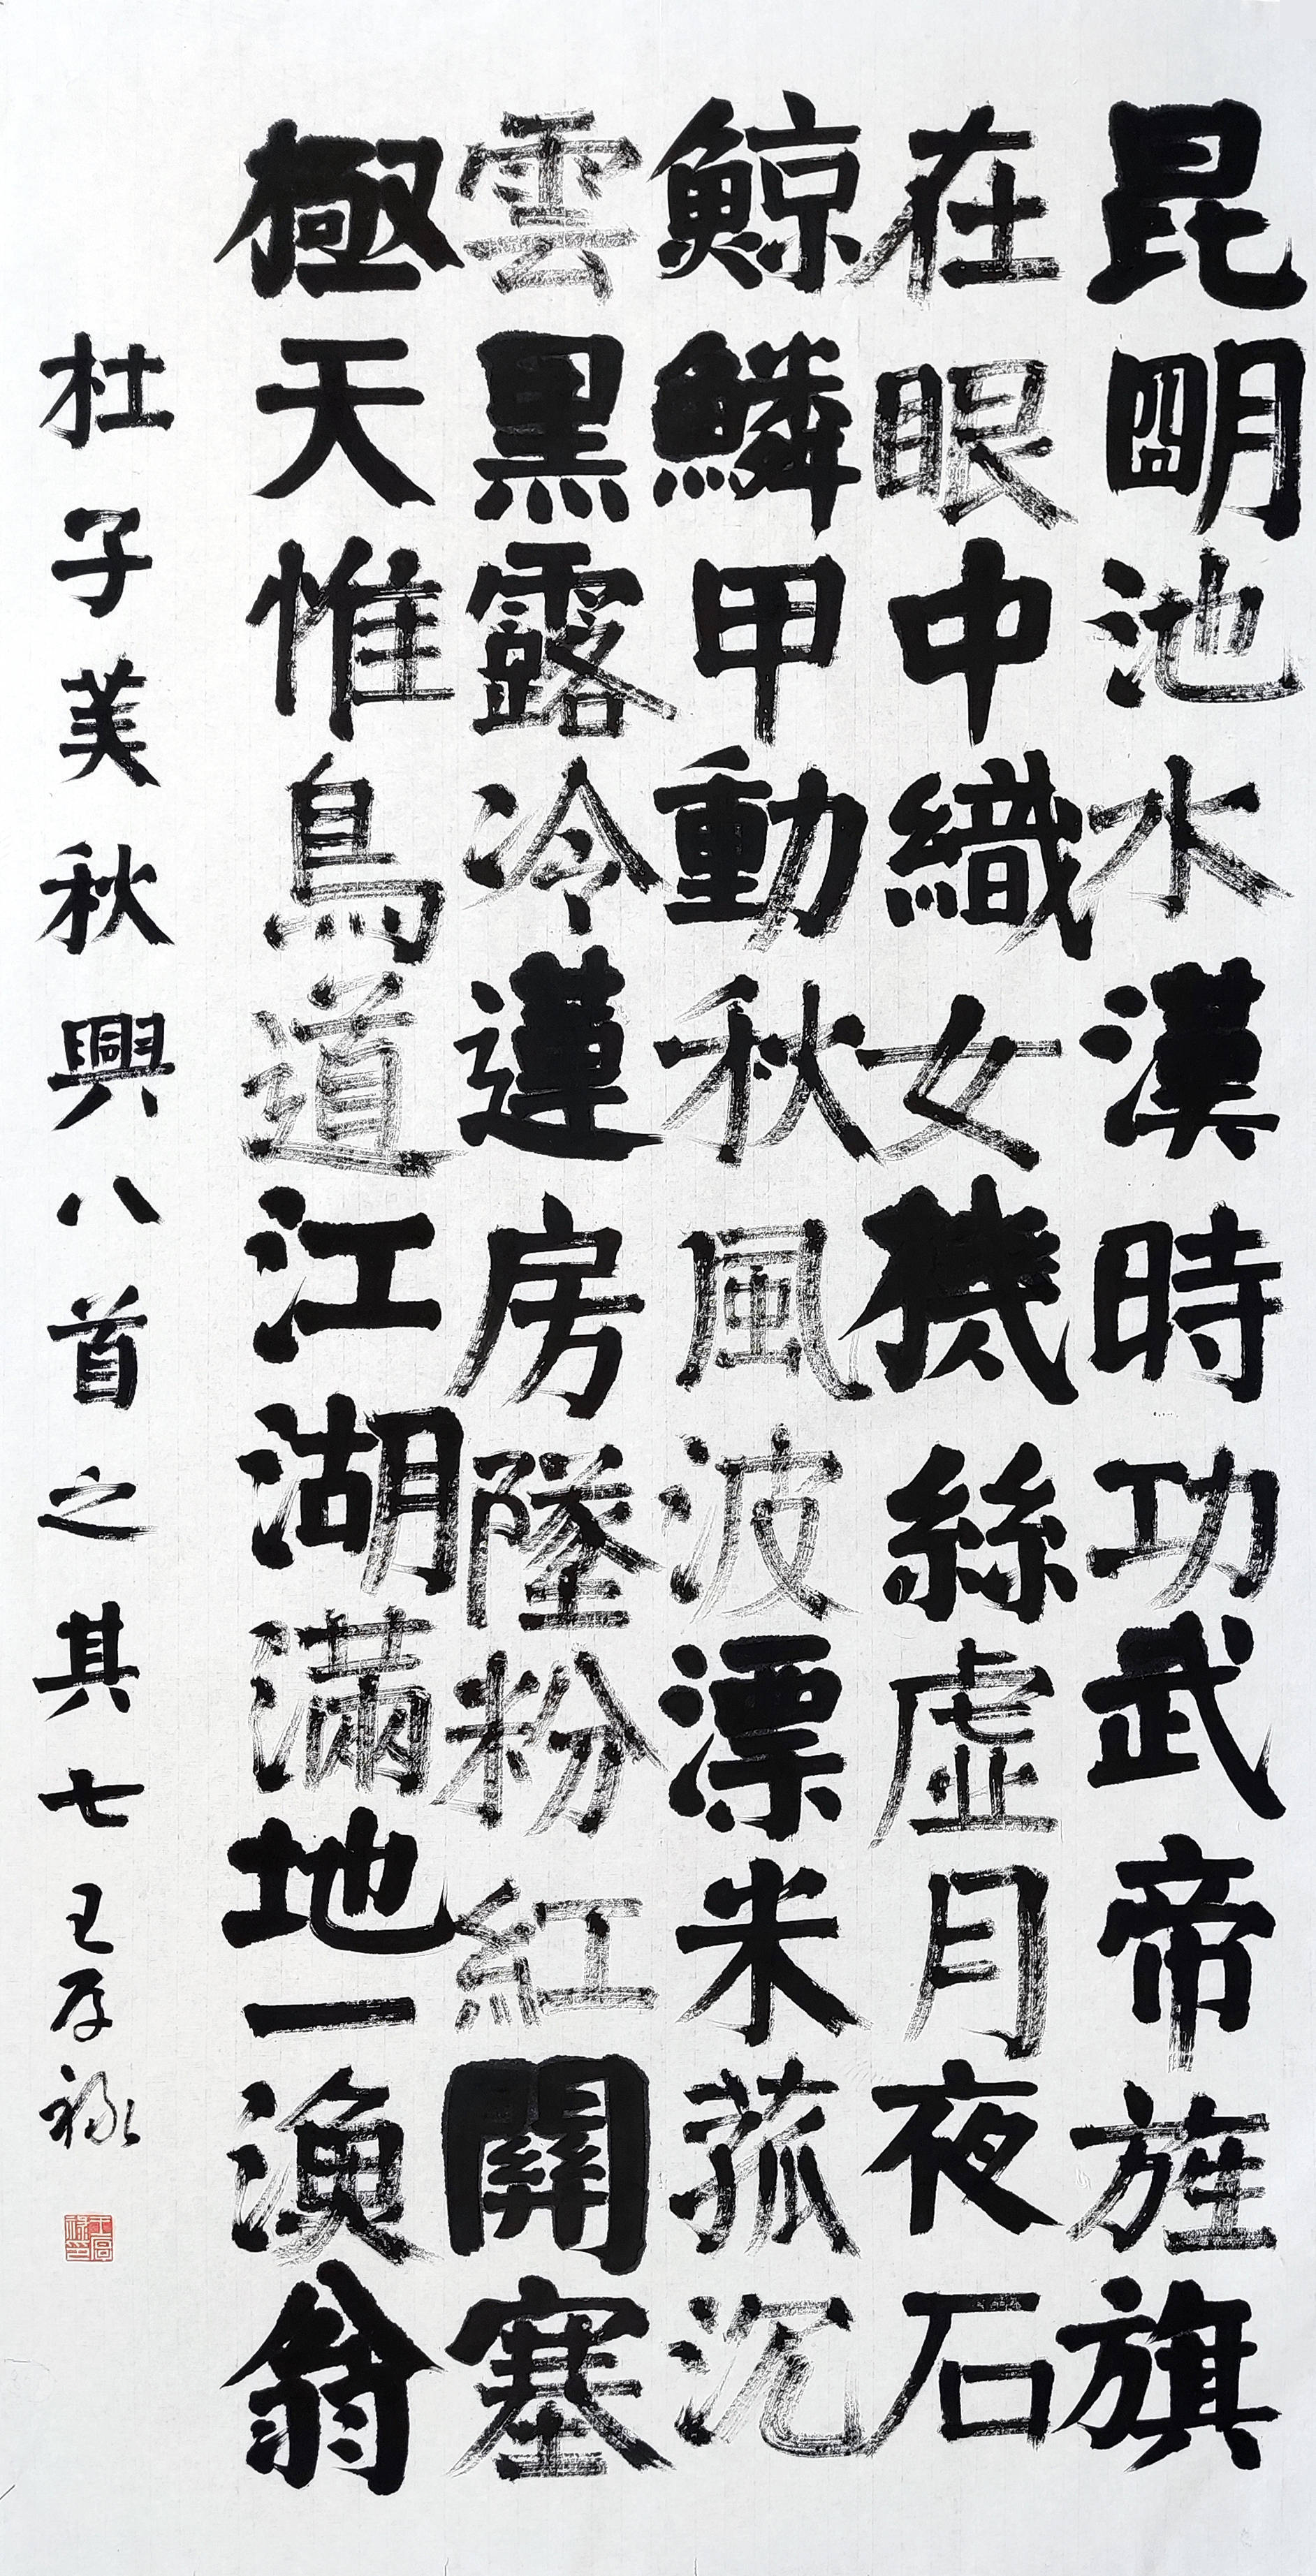 昆明池水漢時功武帝旌旗
在眼中織女機絲虛月夜石
鯨鱗甲動秋風波漂米菰沉
雲黑露冷蓮房墜粉紅關塞
極天惟鳥道江湖滿地一漁翁
杜子美秋興八首之其七 王厚祿